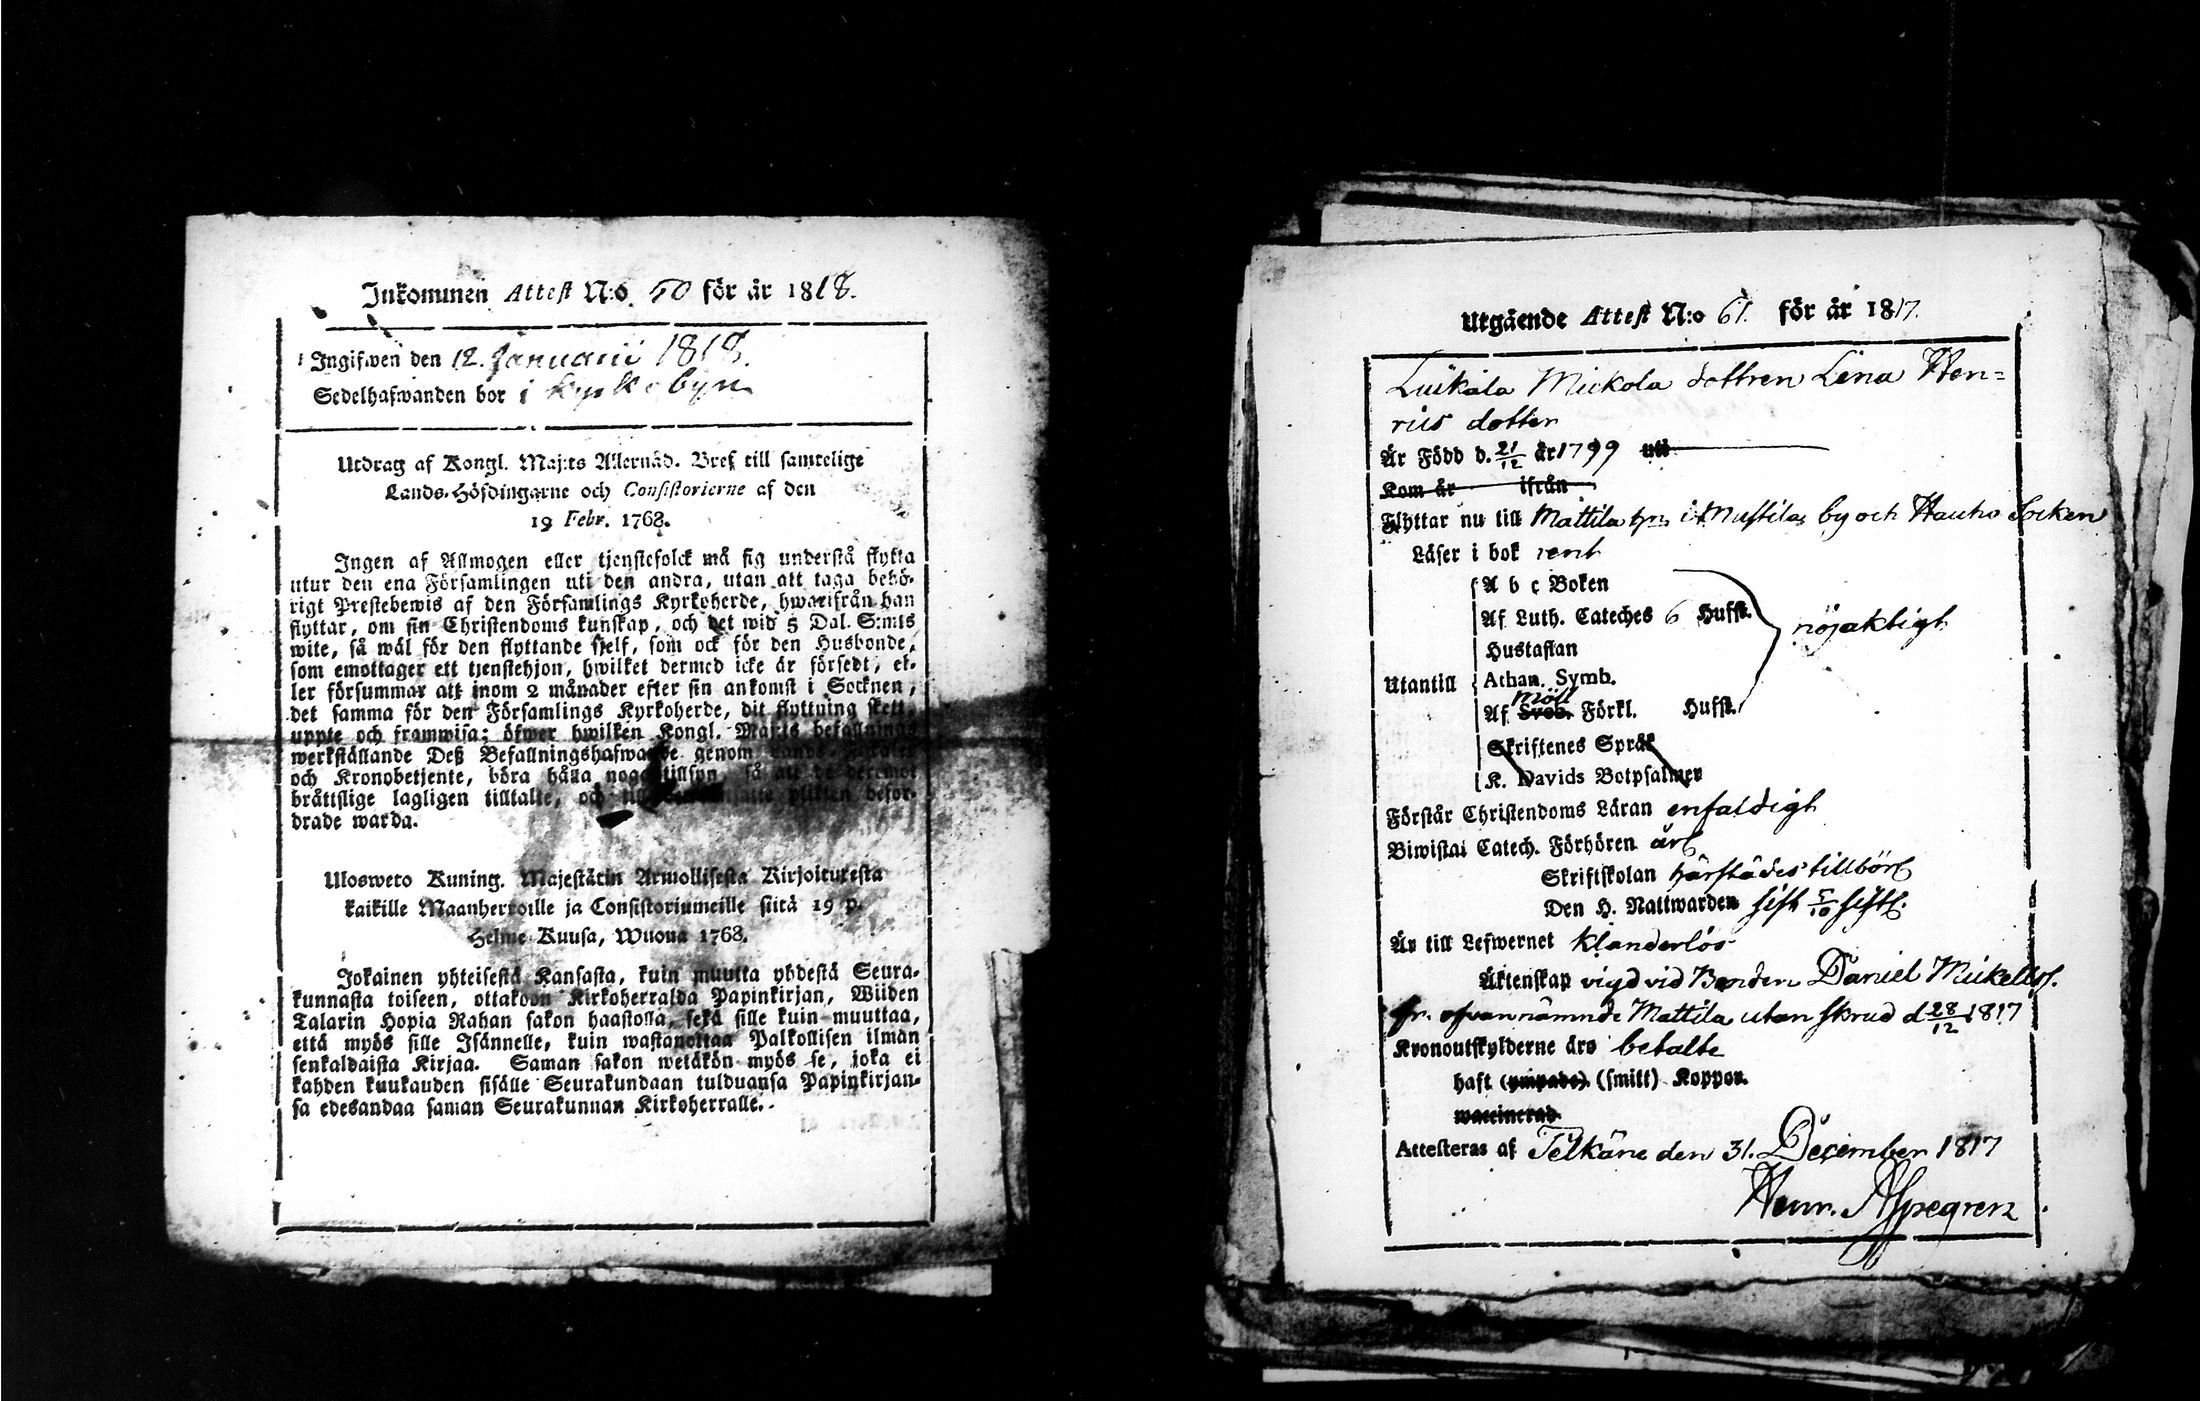 Inkommen Attest N:o 50 för år 1818.
Ingifwen den 12. Januarii 1818.
Sedelhafwanden bor i Kyrkobyn
Utdrag af Kongl. Maj:ts Allernåd. Bref till samtelige
Lands-Höfdingarne och Consistorierne af den
19 Febr. 1768.
Ingen af Allmogen eller tjenstefolck må sig understå flytta
utur den ena Församlingen uti den andra, utan att taga behö-
rigt Prestebewis af den Församlings Kyrkoherde, hwarifrån han
flyttar, om sin Christendoms kunskap, och det wid 5 Dal. S:mts
wite, så wäl för den flyttande sjelf, som ock för den Husbonde,
som emottager ett tjenstehjon, hwilket dermed icke är försedt, el-
ler försummar att inom 2 månader efter sin ankomst i Socknen,
det samma för den Församlings Kyrkoherde, dit flyttning skett,
uppte och framwisa; öfwer hwilken Kongl. Maj:ts befallnings
werkställande Deß Befallningshafwande genom Lands-
och Kronobetjente, böra hålla noga tillsyn, så att de deremot
bråttslige lagligen tilltalte, och till plikten befor-
drade warda.
Ulosweto Kuning. Majestätin Armollisesta Kirjoituresta
kaikille Maanherroille ja Consistoriumeille siitä 19 p.
Helme-Kuusa, Wuona 1768.
Jokainen yhteisestä Kansasta, kuin muutta yhdestä Seura-
kunnasta toiseen, ottakoon Kirkoherralda Papinkirjan, Wiiden
Talarin Hopia Rahan sakon haastolla, sekä sille kuin muuttaa,
että myös sille Isännelle, kuin wastanottaa Palkollisen ilman
senkaldaista Kirjaa. Saman sakon wetäkön myös se, joka ei
kahden kuukauden sisälle Seurakundaan tulduansa Papinkirjan-
sa edesandaa saman Seurakunnan Kirkoherralle.
Utgående Attest N:o 61. för år 1817.
Luikala Mickola dottren Lena Hen=
rics dotter
Är Född d. 21/12 år 1799 uti
Kom år ifrån
Flyttar nu till Mattila hn i Mustila by och Hauho Socken
Läser i bok rent
A b c Boken
Af Luth. Cateches 6 Hufst. nöjaktigt
Hustaflan
Utantill Athan. Symb.
Möll
Af Sveb. Förkl. Hufst.
Skriftenes Språk
K. Davids Botpsalmer
Förstår Christendoms Läran enfaldigt
Biwistat Catech. Förhören årl
Skriftskolan härstädes tillbörl
Den H. Nattwarden sist 5/10 sistl.
Är till Lefwernet klanderlös
Äktenskap vigd vid Bonden Daniel Mickelss.
fr. ofvannämnde Mattila utan skrud d 28/12 1817
Kronoutskylderne äro betalte
haft (ympade) (smitt) Koppor.
waccinerad
Attesteras af Pelkäne den 31. December 1817
Henr. Aspegren